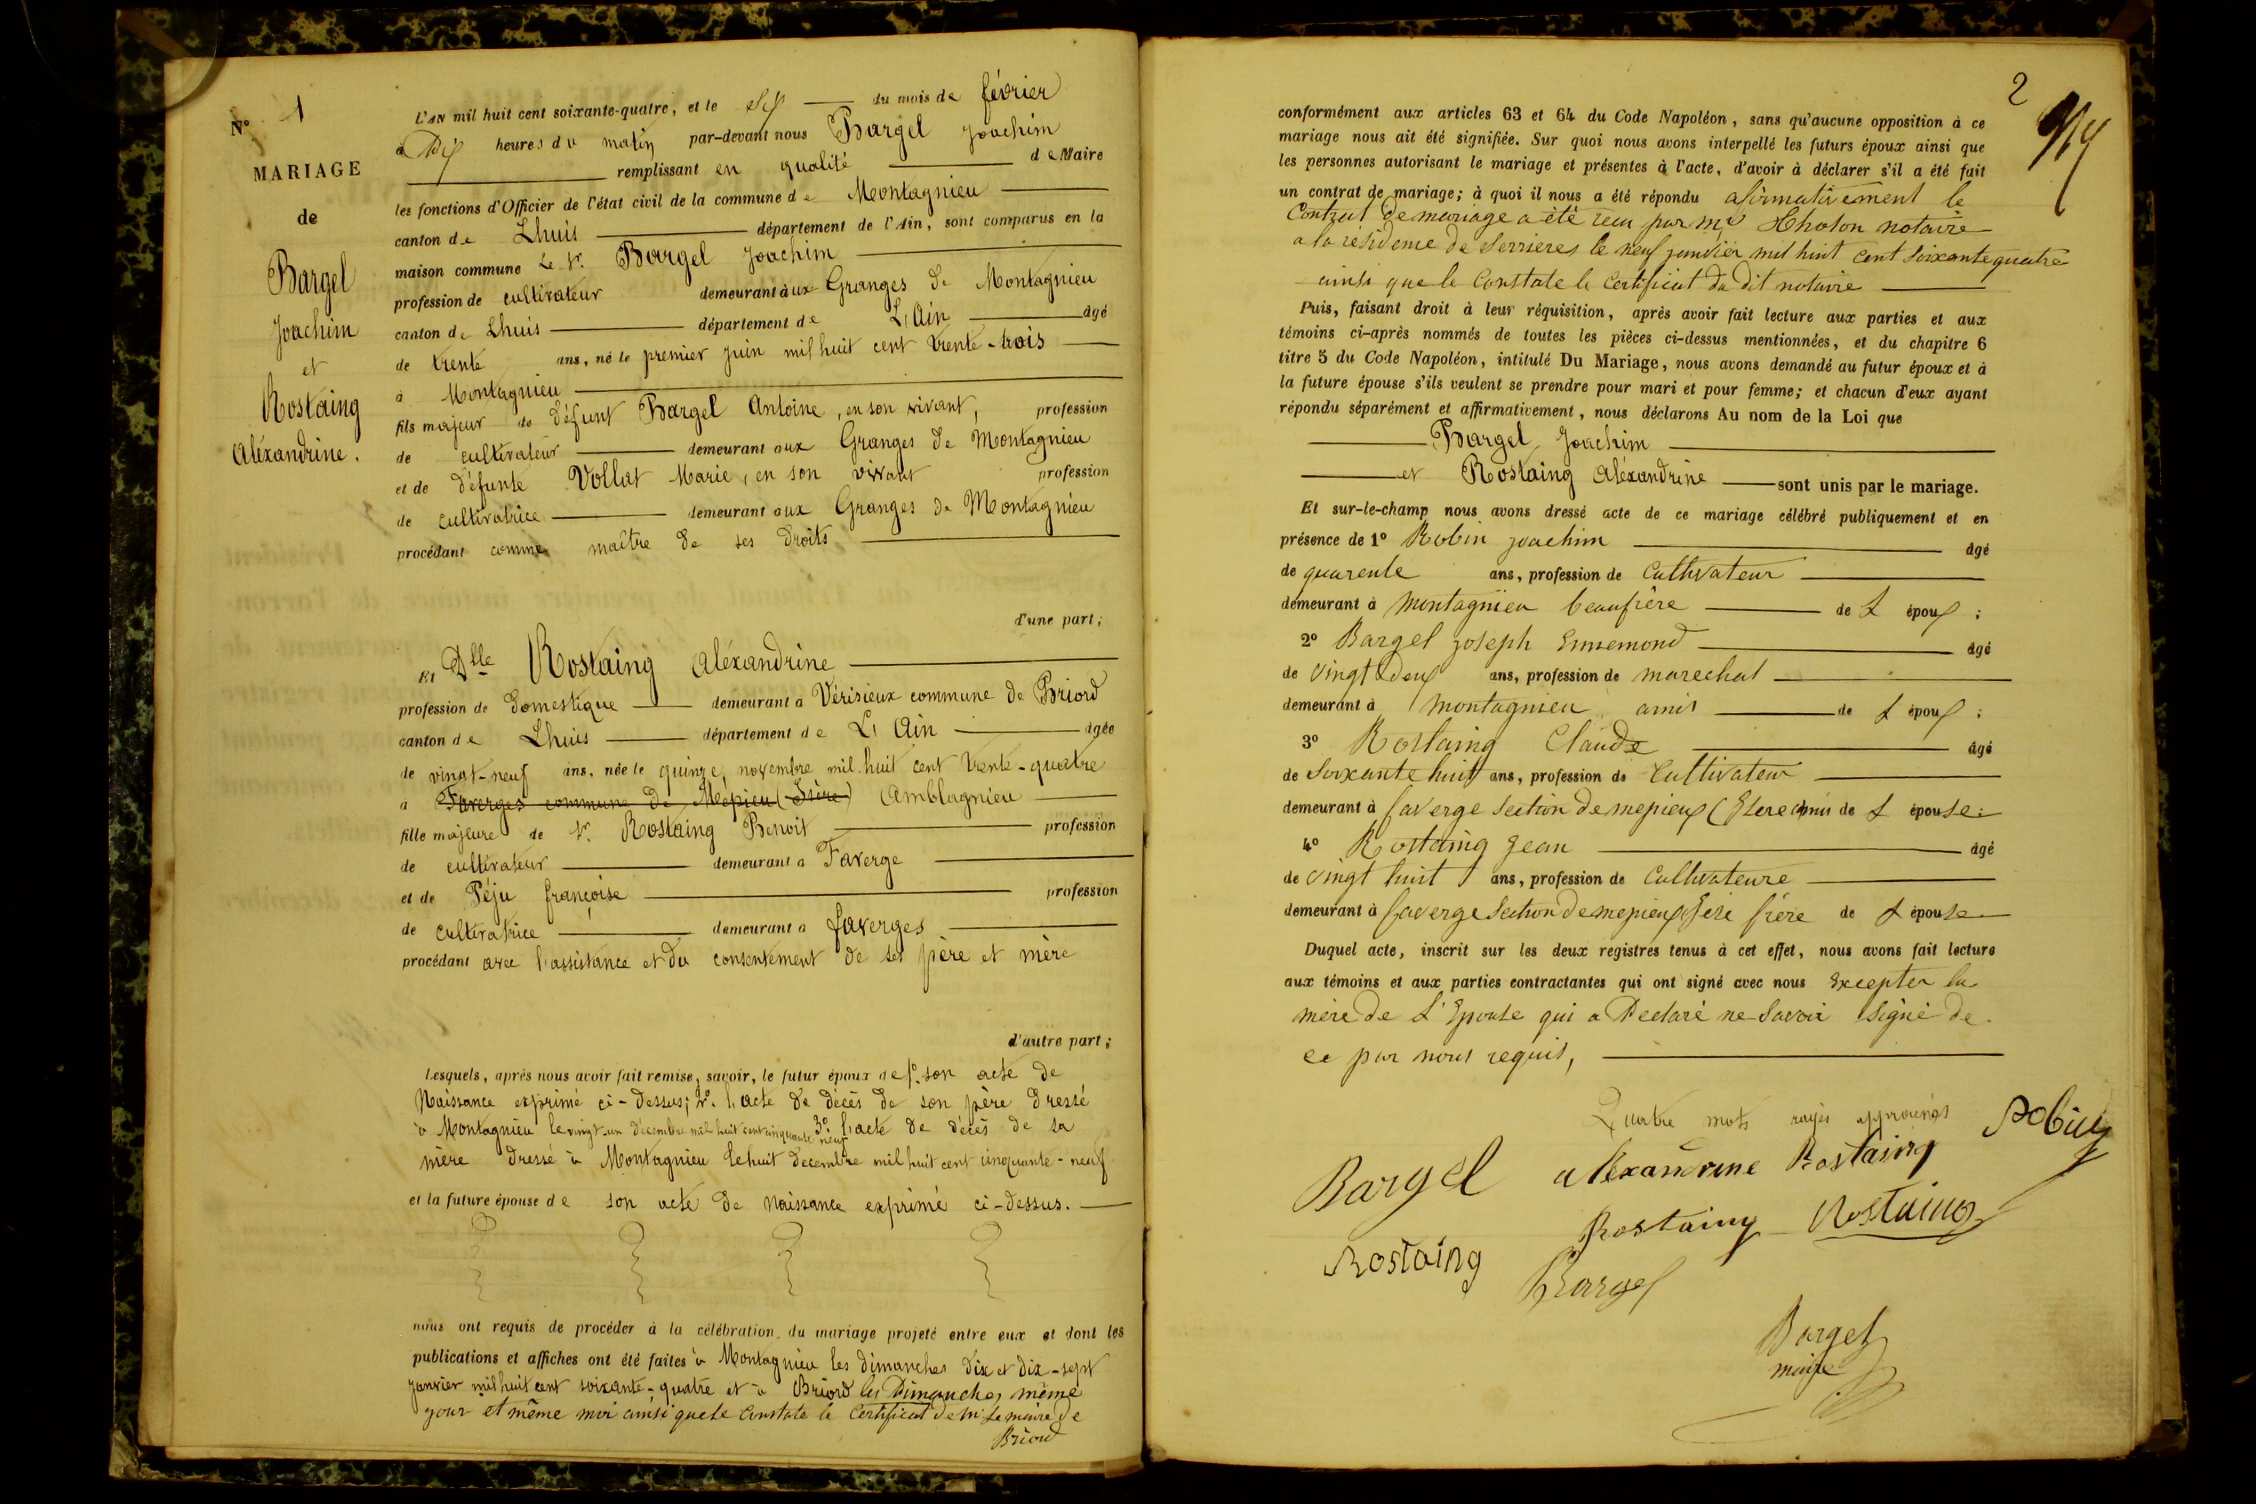 N° 1
MARIAGE
de
Bargel
Joachim
et
Rostaing
Aléxandrine.
L'AN mil huit cent soixante-quatre, et le Six du mois de février
à Dix heures du matin par-devant nous Bargel Joachim
remplissant en qualité de Maire
les fonctions d'Officier de l'état civil de la commune de Montagnieu
canton de Lhuis département de l'Ain, sont comparus en la
maison commune Le Sr. Bargel Joachim
profession de cultivateur demeurant aux Granges de Montagnieu
canton de Lhuis département de L'Ain âgé
de trente ans, né le premier juin mil huit cent trente-trois
à Montagnieu
fils majeur de défunt Bargel Antoine, en son vivant, profession
de cultivateur demeurant aux Granges de Montagnieu
et de défunte Vollat Marie, en son vivant profession
de cultivatrice demeurant aux Granges de Montagnieu
procédant comme maître de ses droits
d'une part;
Et Dlle Rostaing Aléxandrine
profession de domestique demeurant à Vérisieux commune de Briord
canton de Lhuis département de L'Ain âgée
de vingt-neuf ans, née le quinze, novembre mil huit cent trente-quatre
à Faverges commune de Mépieu (Isère) Amblagnieu
fille majeure de Sr. Rostaing Benoit profession
de cultivateur demeurant à Faverge
et de Péju françoise profession
de cultivatrice demeurant à faverges
procédant avec l'assistance et du consentement de ses père et mère
d'autre part;
Lesquels, après nous avoir fait remise, savoir, le futur époux de 1°. son acte de
Naissance exprimé ci-dessus; 2°. l'acte de décès de son père dressé
à Montagnieu le vingt-un décembre mil huit cent cinquante neuf 3° l'acte de décès de sa
mère dressé à Montagnieu le huit décembre mil huit cent cinquante-neuf
et la future épouse de son acte de naissance exprimé ci-dessus.
nous ont requis de procéder à la célébration du mariage projeté entre eux et dont les
publications et affiches ont été faites à Montagnieu les dimanches dix et dix-sept
janvier mil huit cent soixante-quatre et à Briord les Dimanches même
jour et même moi ainsi que le constate le certificat de Mr le maire de
Briord
2
conformément aux articles 63 et 64 du Code Napoléon, sans qu'aucune opposition à ce
mariage nous ait été signifiée. Sur quoi nous avons interpellé les futurs époux ainsi que
les personnes autorisant le mariage et présentes à l'acte, d'avoir à déclarer s'il a été fait
un contrat de mariage; à quoi il nous a été répondu afirmativement le
Contrat de mariage a été recu par me notaire
a la résidence de Serrieres le neuf janvier mil huit cent soixante quatre
ainsi que le Constate le certificat du dit notaire
Puis, faisant droit à leur réquisition, après avoir fait lecture aux parties et aux
témoins ci-après nommés de toutes les pièces ci-dessus mentionnées, et du chapitre 6
titre 5 du Code Napoléon, intitulé Du Mariage, nous avons demandé au futur époux et à
la future épouse s'ils veulent se prendre pour mari et pour femme; et chacun d'eux ayant
répondu séparément et affirmativement, nous déclarons Au nom de la Loi que
Bargel Joachim
et Rostaing Aléxandrine sont unis par le mariage.
Et sur-le-champ nous avons dressé acte de ce mariage célébré publiquement et en
présence de 1° Robin joachim âgé
de quarente ans, profession de Cultivateur
demeurant à montagnieu beaufrère de L époux;
2° Bargel joseph Ennemond âgé
de vingt deux ans, profession de marechal
demeurant à montagnieu amis de L époux;
3° Rostaing Claude âgé
de Soixante huit ans, profession de Cultivateur
demeurant à faverge section de mepieux (Isere amis de L épouse;
4° Rostaing Jean âgé
de vingt huit ans, profession de Cultivateure
demeurant à faverge section de mepieux Isère frère de L épouse
Duquel acte, inscrit sur les deux registres tenus à cet effet, nous avons fait lecture
aux témoins et aux parties contractantes qui ont signé avec nous Excepter la
mère de L'Epouse qui a Declaré ne savoir signé de
ce par nous requis,
Quatre mots rayés approuvés
Robin
Bargel alexandrine Rostaing
Rostaing Rostaing
Rostaing Bargel
Bargel
maire